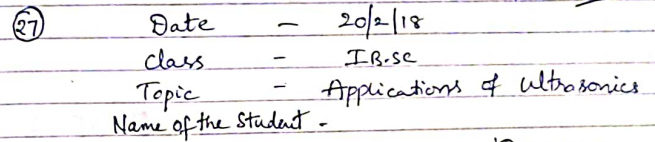 27 Date - 20/2/18
class - I B.sc
Topic - Applications of ultrasonics
Name of the Student -